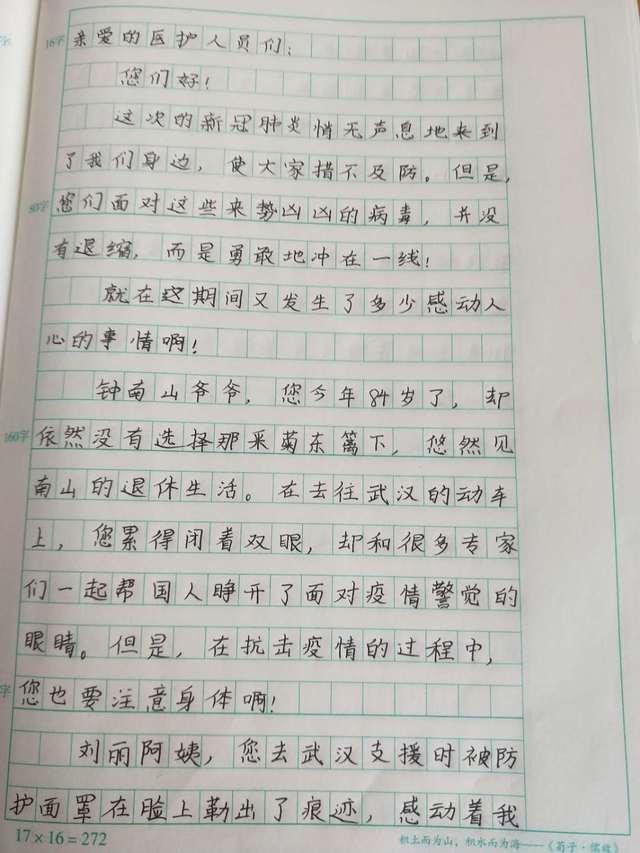 16字 亲爱的医护人员们:
您们好!
这次的新冠肺炎悄无声息地来到
了我们身边,使大家措不及防。但是,
80字 您们面对这些来势凶凶的病毒,并没
有退缩,而是勇敢地冲在一线!
就在这期间又发生了多少感动人
心的事情啊!
钟南山爷爷,您今年84岁了,却
160字 依然没有选择那采菊东篱下,悠然见
南山的退休生活。在去往武汉的动车
上,您累得闭着双眼,却和很多专家
们一起帮国人睁开了面对疫情警觉的
眼睛。但是,在抗击疫情的过程中,
字 您也要注意身体啊!
刘丽阿姨,您去武汉支援时被防
护面罩在脸上勒出了痕迹,感动着我
17×16=272 积土而为山,积水而为海——《荀子·儒效》